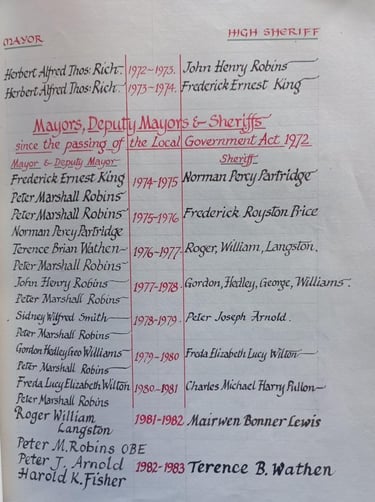 MAYOR HIGH SHERIFF
Herbert Alfred Thos: Rich. 1972-1973. John Henry Robins
Herbert Alfred Thos: Rich. 1973-1974. Frederick Ernest King
Mayors, Deputy Mayors & Sheriffs
since the passing of the Local Government Act 1972
Mayor & Deputy Mayor Sheriff
Frederick Ernest King 1974-1975 Norman Percy Partridge
Peter Marshall Robins
Peter Marshall Robins 1975-1976 Frederick Royston Price
Norman Percy Partridge
Terence Brian Wathen 1976-1977 Roger, William, Langston.
Peter Marshall Robins
John Henry Robins 1977-1978 Gordon, Hedley, George, Williams.
Peter Marshall Robins
Sidney Wilfred Smith 1978-1979 Peter Joseph Arnold.
Peter Marshall Robins
Gordon Hedley Geo Williams 1979-1980 Freda Elizabeth Lucy Wilton
Peter Marshall Robins
Freda Lucy Elizabeth Wilton 1980-1981 Charles Michael Harry Pullon
Peter Marshall Robins
Roger William 1981-1982 Mairwen Bonner Lewis
Langston
Peter M. Robins OBE
Peter J. Arnold 1982-1983 Terence B. Wathen
Harold K. Fisher